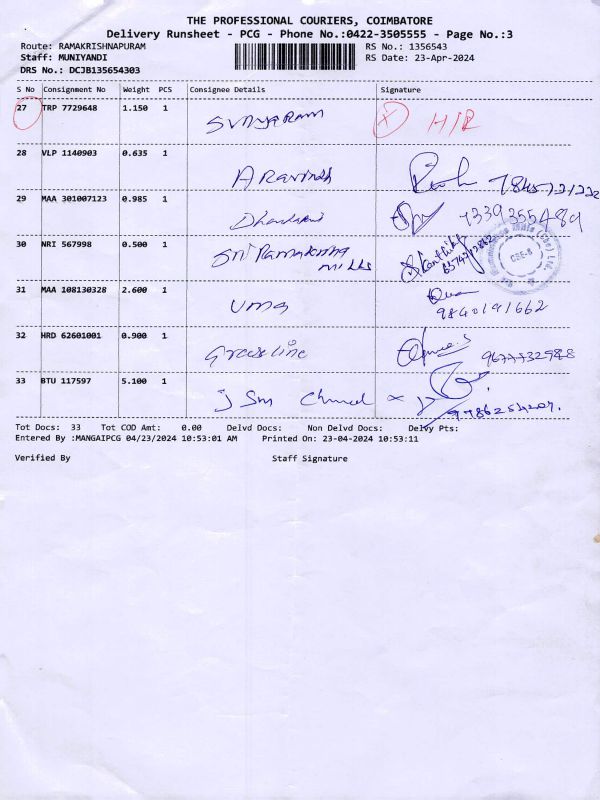 THE PROFESSIONAL COURIERS, COIMBATORE
Delivery Runsheet - PCG - Phone No.:0422-3505555 - Page No.:3
Route: RAMAKRISHNAPURAM RS No.: 1356543
Staff: MUNIYANDI RS Date: 23-Apr-2024
DRS No.: DCJB135654303
S No Consignment No Weight PCS Consignee Details Signature
27 TRP 7729648 1.150 1 H/R
28 VLP 1140903 0.635 1 Aravindh
29 MAA 301007123 0.985 1 7339355489
30 NRI 567998 0.500 1 Sri Ramakrishna mills
31 MAA 108130328 2.600 1 Uma 9840191662
32 HRD 62601001 0.900 1
33 BTU 117597 5.100 1 J Sm
Tot Docs: 33 Tot COD Amt: 0.00 Delvd Docs: Non Delvd Docs: Delvy Pts:
Entered By :MANGAIPCG 04/23/2024 10:53:01 AM Printed On: 23-04-2024 10:53:11
Verified By Staff Signature